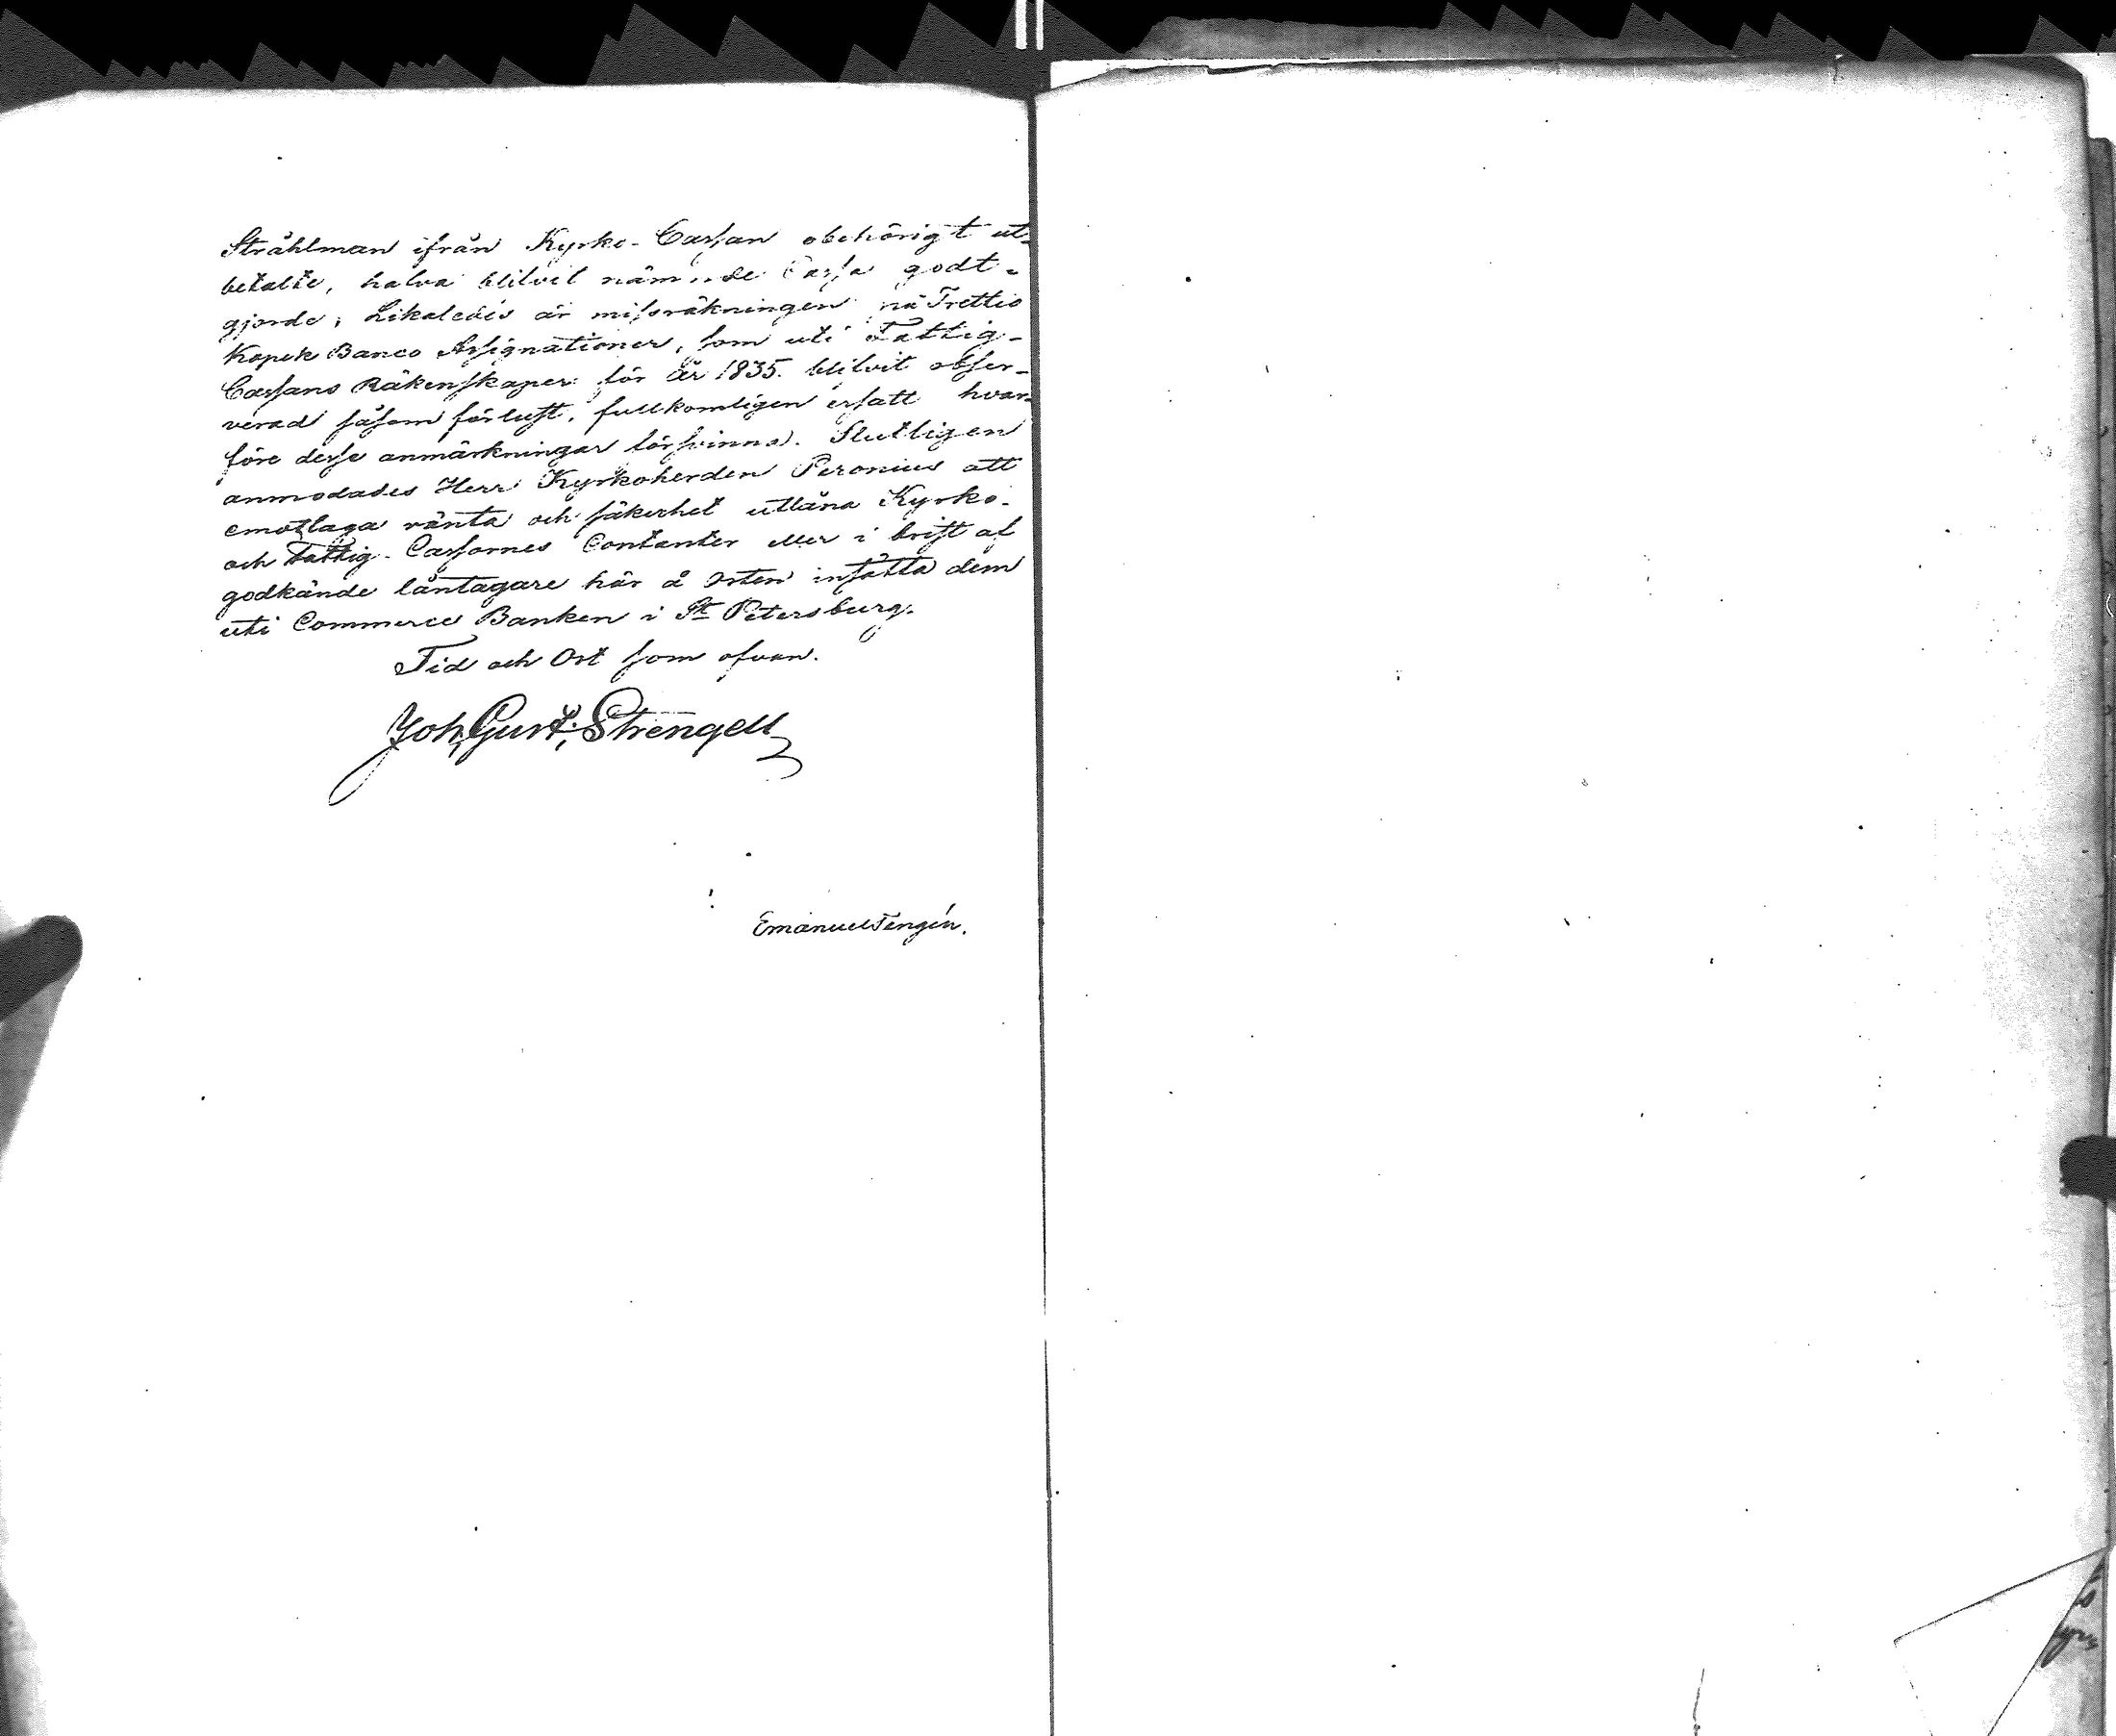 Stråhlman ifrån Kyrko-Cassan obehörigt ut-
betalte, halva blifvit nämnde Cassa godt-
gjorde; Likaledes är missräkningen på Trettio
Kopek Banco Assignationer, som uti Fattig-
Cassans Räkenskaper för år 1835. blifvit obser-
verad såsom förlust, fullkomligen ersatt hvar-
före desse anmärkningar försvinna. Slutligen
anmodades Herr Kyrkoherden Peronius att
emottaga ränta och säkerhet utlåna Kyrko-
och Fattig-Cassornes Contanter eller i brist af
godkände låntagare här å Orten insätta dem
uti Commerce Banken i St Petersburg.
Tid och Ort som ofvan.
Joh. Gust. Strengell
Emanuel Tengén.